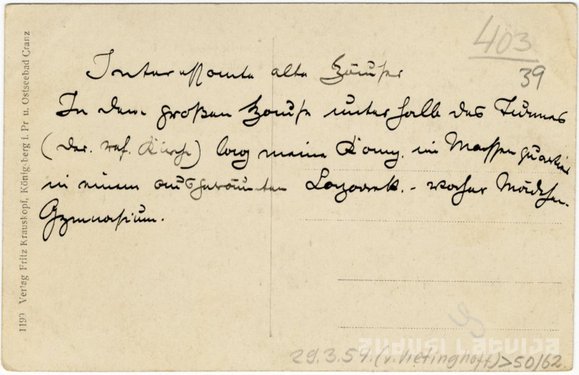 403
39
Interessante alte Häuser
In dem großen Hause unterhalb des Turmes
(der ref. Kirche) lag meine Komp. im Massenquartier
in einem ausgeräumten Lazarett. - vorher Mädchen-
Gymnasium.
1190 Verlag Fritz Krauskopf, Königsberg i. Pr u. Ostseebad Cranz
29.3.54 (v. Vietinghoff) > 50/62